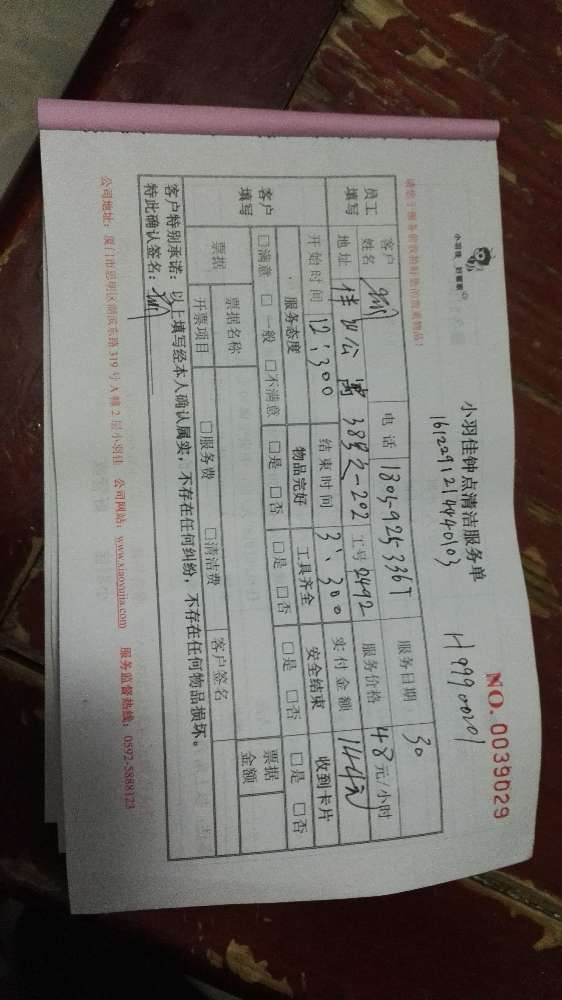 小羽佳 好管家
小羽佳钟点清洁服务单
NO. 0039029
1612291214440103
H99900201
请您于服务前收拾好您的贵重物品!
员工填写 客户姓名 电话 1805925336T 服务日期 30
地址 佳丽公寓 38号之一202 工号 0492 服务价格 48元/小时
开始时间 12:300 结束时间 3:300 实付金额 144元
客户填写 服务态度 物品完好 工具齐全 安全结束 收到卡片
□满意 □一般 □不满意 □是 □否 □是 □否 □是 □否 □是 □否
票据 票据名称 客户签名 票据金额
开票项目 □服务费 □清洁费
客户特别承诺:以上填写经本人确认属实,不存在任何纠纷,不存在任何物品损坏。
特此确认签名:
公司地址:厦门市思明区湖滨东路319号A幢2层小羽佳 公司网站:www.xiaoyujia.com 服务监督热线:0592-5888123